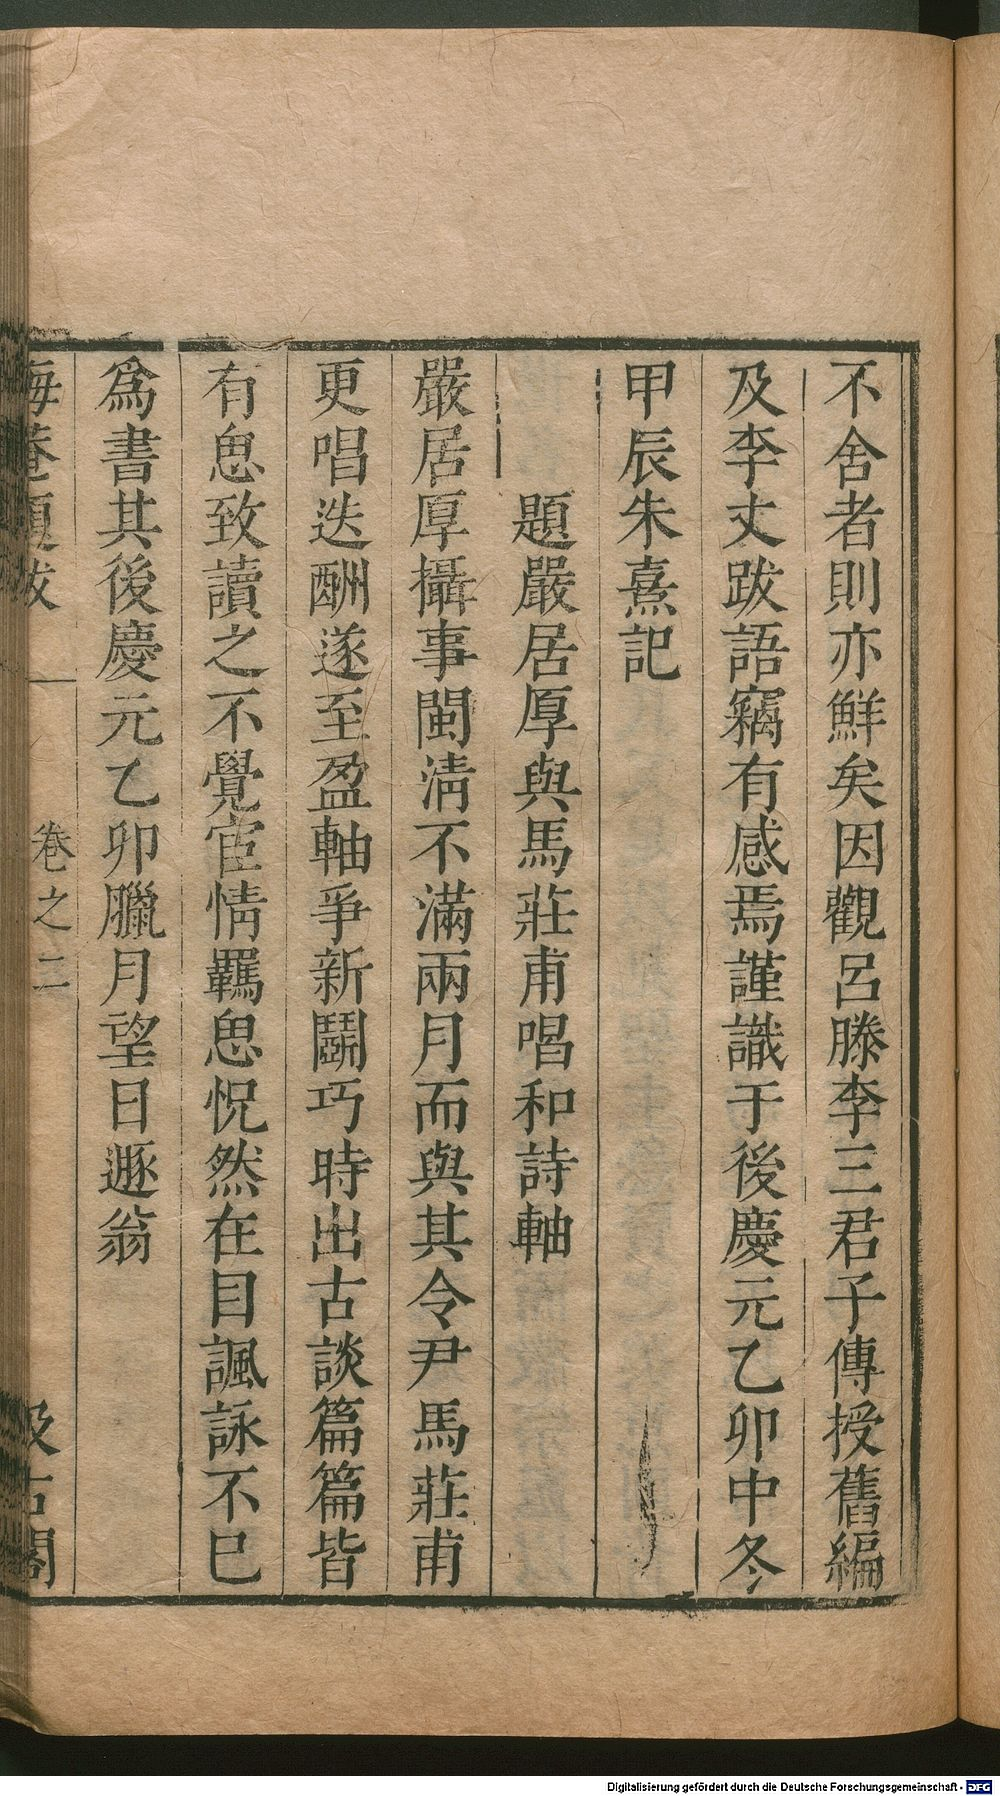 不舍者則亦鮮矣因觀呂滕李三君子傳授舊編
及李丈跋語竊有感焉謹識于後慶元乙卯中冬
甲辰朱熹記
題嚴居厚與馬莊甫唱和詩軸
嚴居厚攝事閩淸不滿兩月而與其令尹馬莊甫
更唱迭酬遂至盈軸爭新鬭巧時出古談篇篇皆
有思致讀之不覺宦情羈思怳然在目諷詠不已
爲書其後慶元乙卯臘月望日遯翁
晦菴題跋
卷之二
汲古閣
Digitalisierung gefördert durch die Deutsche Forschungsgemeinschaft - DFG